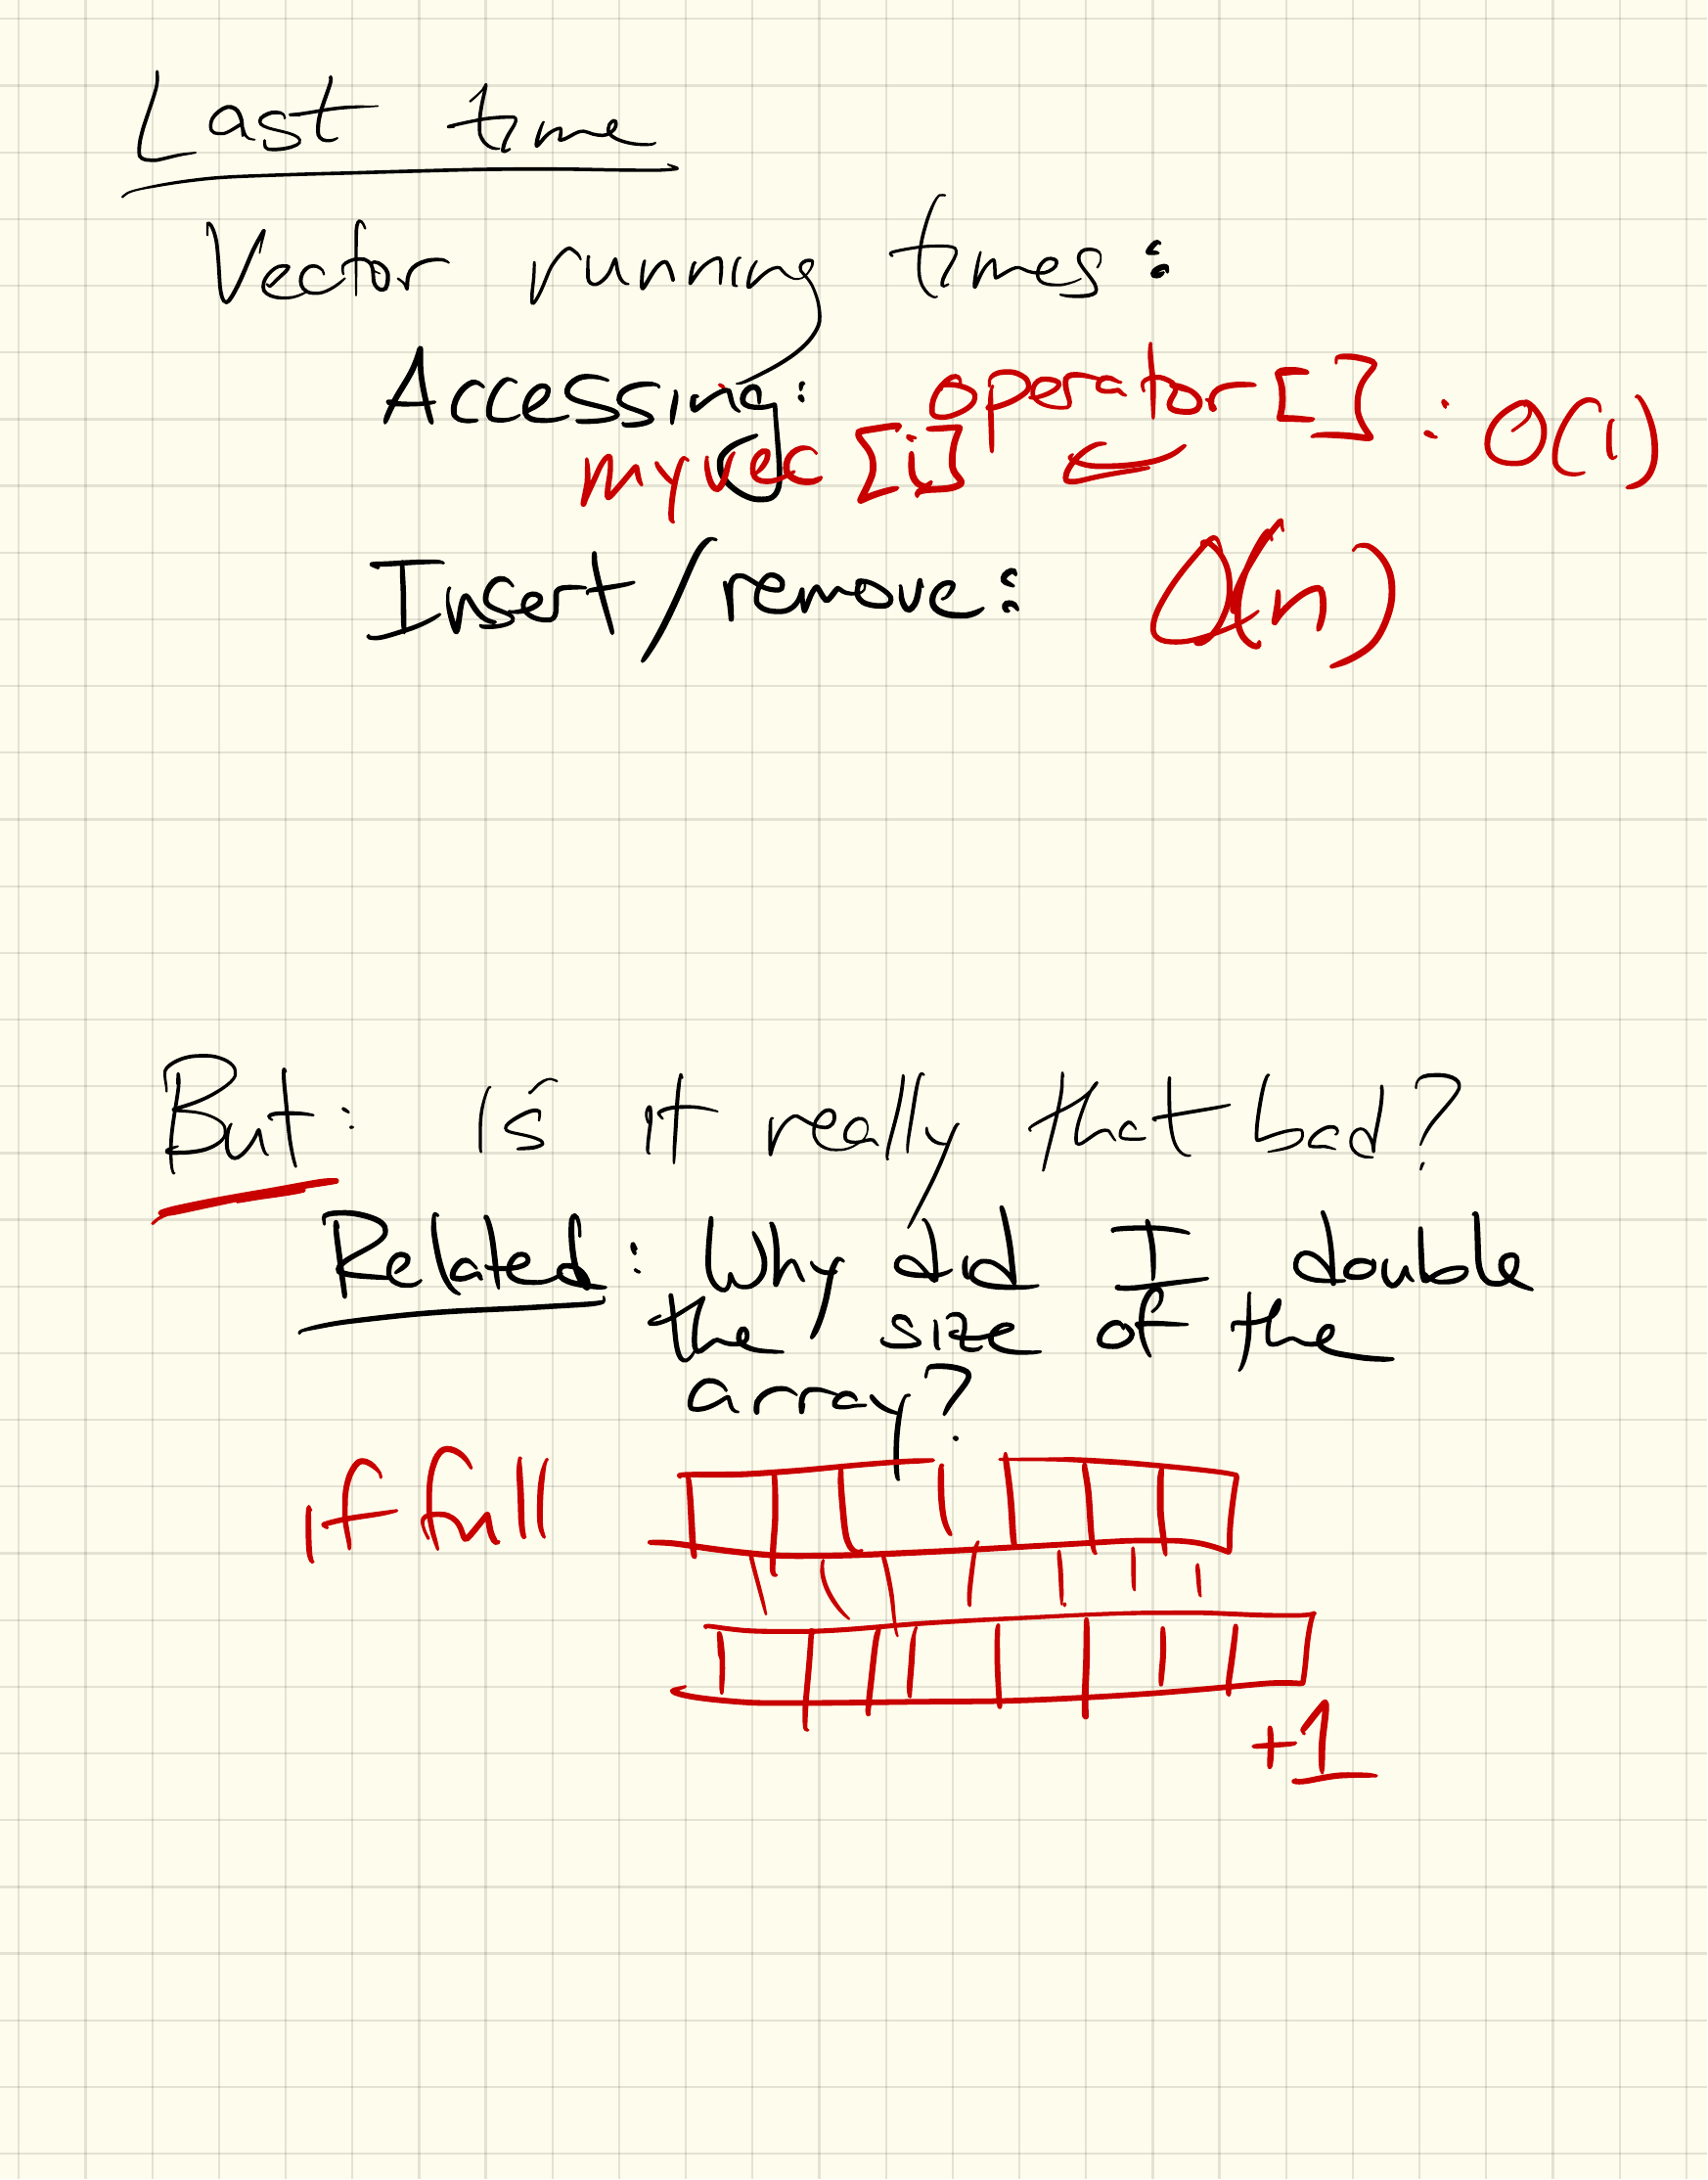 Last time
Vector running times:
Accessing: operator[] : O(1)
myvec[i]
Insert/remove: O(n)
But: Is it really that bad?
Related: Why did I double
the size of the
array?
if full
+1